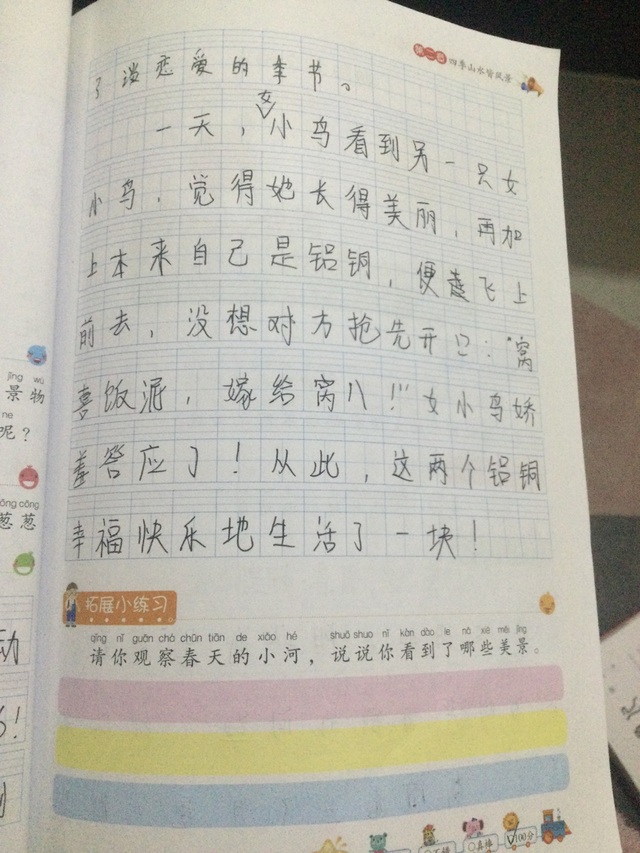 第二章 四季山水皆风景
了谈恋爱的季节。
一天，女小鸟看到另一只女
小鸟，觉得她长得美丽，再加
上本来自己是铝铜，便趁飞上
前去，没想对方抢先开口："窝
喜饭泥，嫁给窝八！"女小鸟娇
羞答应了！从此，这两个铝铜
幸福快乐地生活了一块！
jǐng wù
景物
ne
呢？
cōng cōng
葱葱
动
拓展小练习
qǐng nǐ guān chá chūn tiān de xiǎo hé shuō shuo nǐ kàn dào le nǎ xiē měi jǐng
请你观察春天的小河，说说你看到了哪些美景。
真棒
100分